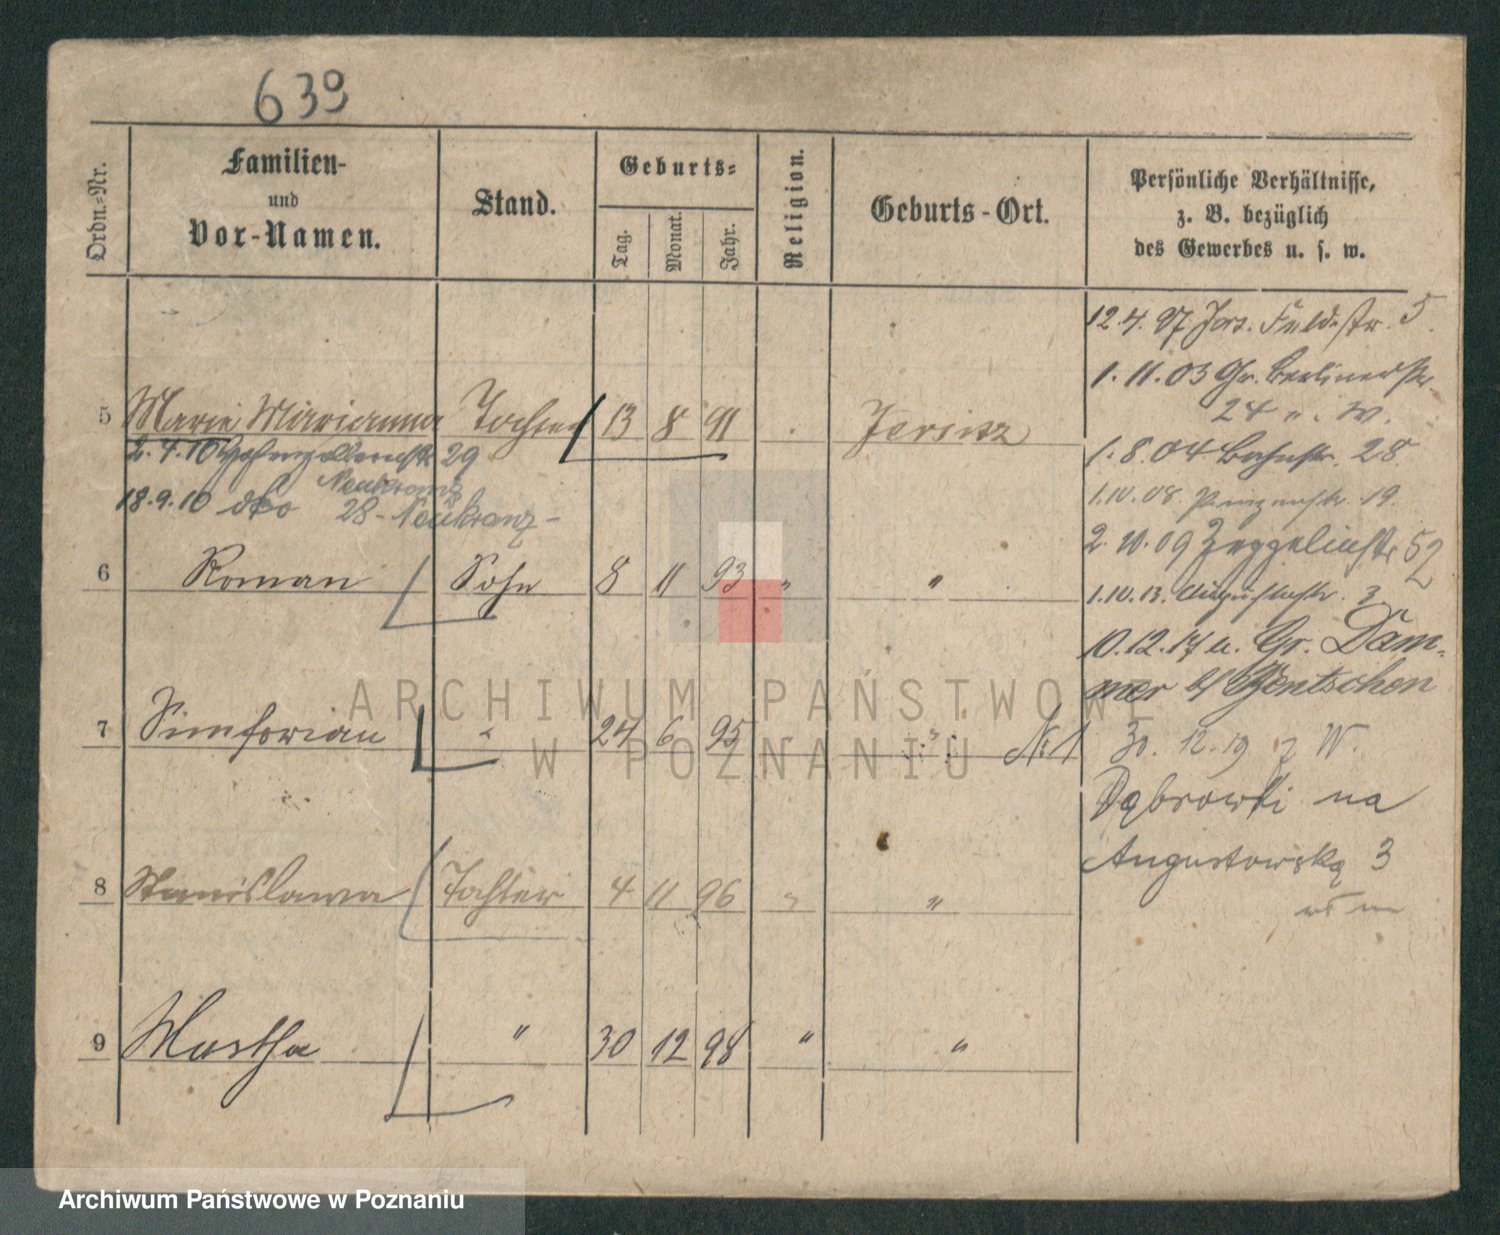 639
Ordn.-Nr.
Familien-
und
Vor-Namen.
Stand.
Geburts-
Tag.
Monat.
Jahr.
Religion.
Geburts-Ort.
Persönliche Verhältnisse,
z. B. bezüglich
des Gewerbes u. s. w.
12.4.97 Jers. Feldstr. 5.
1.11.03 Gr. Berlinerstr.
24 " . W.
5 Marie Marianna Tochter 13 8 91 Jersitz
1.8.04 Bahnstr. 28.
2.4.10 Hohenzollernstr 29
Neukranz
18.9.10 dto 28 - Neukranz -
1.10.08 19.
2.10.09 Zeppelinstr 52
6 Roman Sohn 8 11 93 " "
1.10.13. Augustastr. 3
10.12.17 u. Gr. Dam-
mer b/ Bentschen
7 Simforian " 24 6 95 " " № 1
30.12.19 z W.
Dąbrowki na
Augustowską 3
8 Stanislawa Tochter 4 11 96 " "
9 Martha " 30 12 98 " "
ARCHIWUM PAŃSTWOWE
W POZNANIU
Archiwum Państwowe w Poznaniu